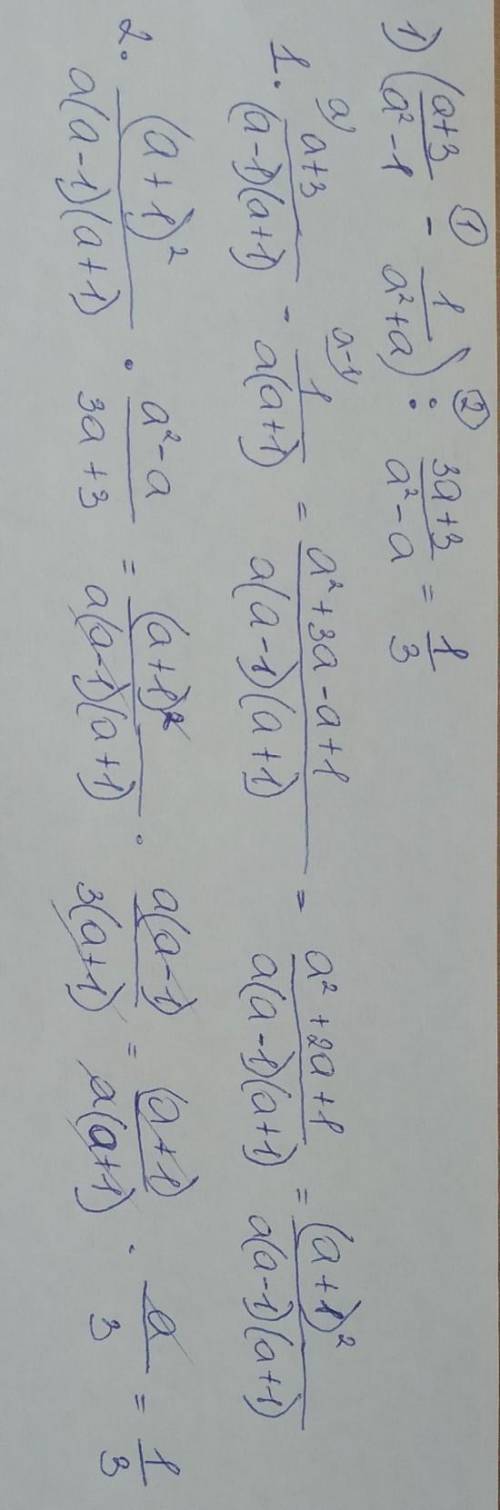 1) ((a+3)/(a²-1) ① - 1/(a²+a)) : ② (3a+3)/(a²-a) = 1/3
1. a) (a+3)/((a-1)(a+1)) - a-1) 1/(a(a+1)) = (a²+3a-a+1)/(a(a-1)(a+1)) = (a²+2a+1)/(a(a-1)(a+1)) = (a+1)²/(a(a-1)(a+1))
2. (a+1)²/(a(a-1)(a+1)) · (a²-a)/(3a+3) = (a+1)²/(a(a-1)(a+1)) · a(a-1)/(3(a+1)) = (a+1)/(a(a+1)) · a/3 = 1/3